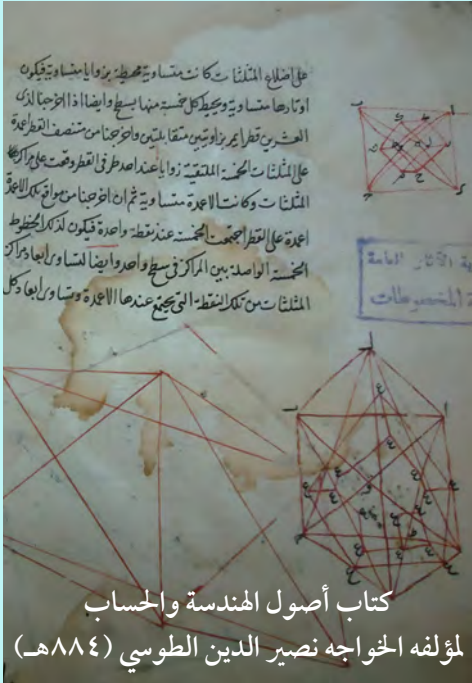 على اضلاع المثلثات كانت متساوية محيطة بزوايا متساوية فيكون
اوتارها متساوية ويحيط كل خمسة منها بسطح وايضا اذا اخرجنا لذى
العشرين قطرا يمر بزاويتين متقابلتين واخرجنا من منتصف القطر اعمدة
على المثلثات الخمسة الملتقية زوايا عند احد طرفى القطر وقعت على مراكز
المثلثات وكانت الاعمدة متساوية ثم ان اخرجنا من مواقع تلك الاعمدة
اعمدة على القطر اجتمعت الخمسة عند نقطة واحدة فيكون لذلك الخطوط
الخمسة الواصلة بين المراكز فى سطح واحد وايضا لتساوى ابعاد مراكز
المثلثات من تلك النقطة التى يجتمع عندها الاعمدة وتساوى ابعاد كل
الآثار العامة
المخطوطات
كتاب أصول الهندسة والحساب
لمؤلفه الخواجه نصير الدين الطوسي (٨٨٤هـ)